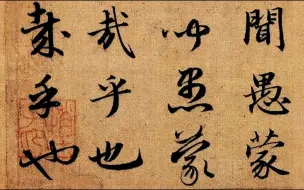 聞愚蒙
聞愚蒙
哉乎也
哉乎也